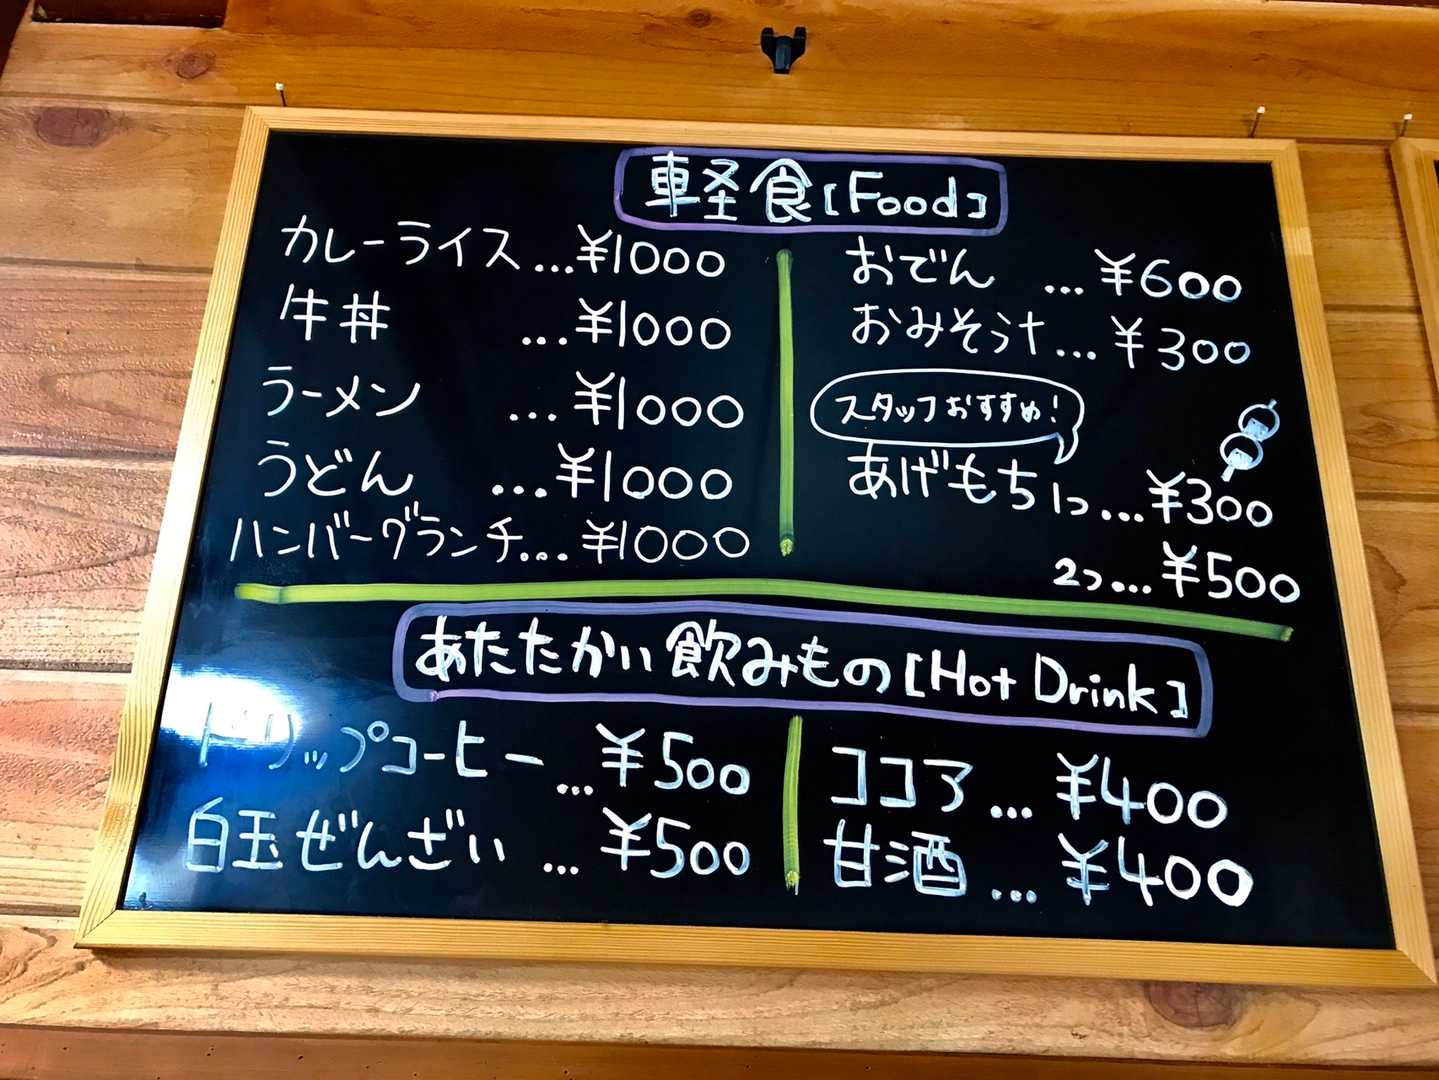 軽食[Food]
カレーライス...¥1000
牛丼 ...¥1000
ラーメン ...¥1000
うどん ...¥1000
ハンバーグランチ...¥1000
おでん ...¥600
おみそう汁...¥300
スタッフおすすめ!
あげもち1つ...¥300
2つ...¥500
あたたかい飲みもの[Hot Drink]
ドリップコーヒー...¥500
白玉ぜんざい ...¥500
ココア...¥400
甘酒...¥400